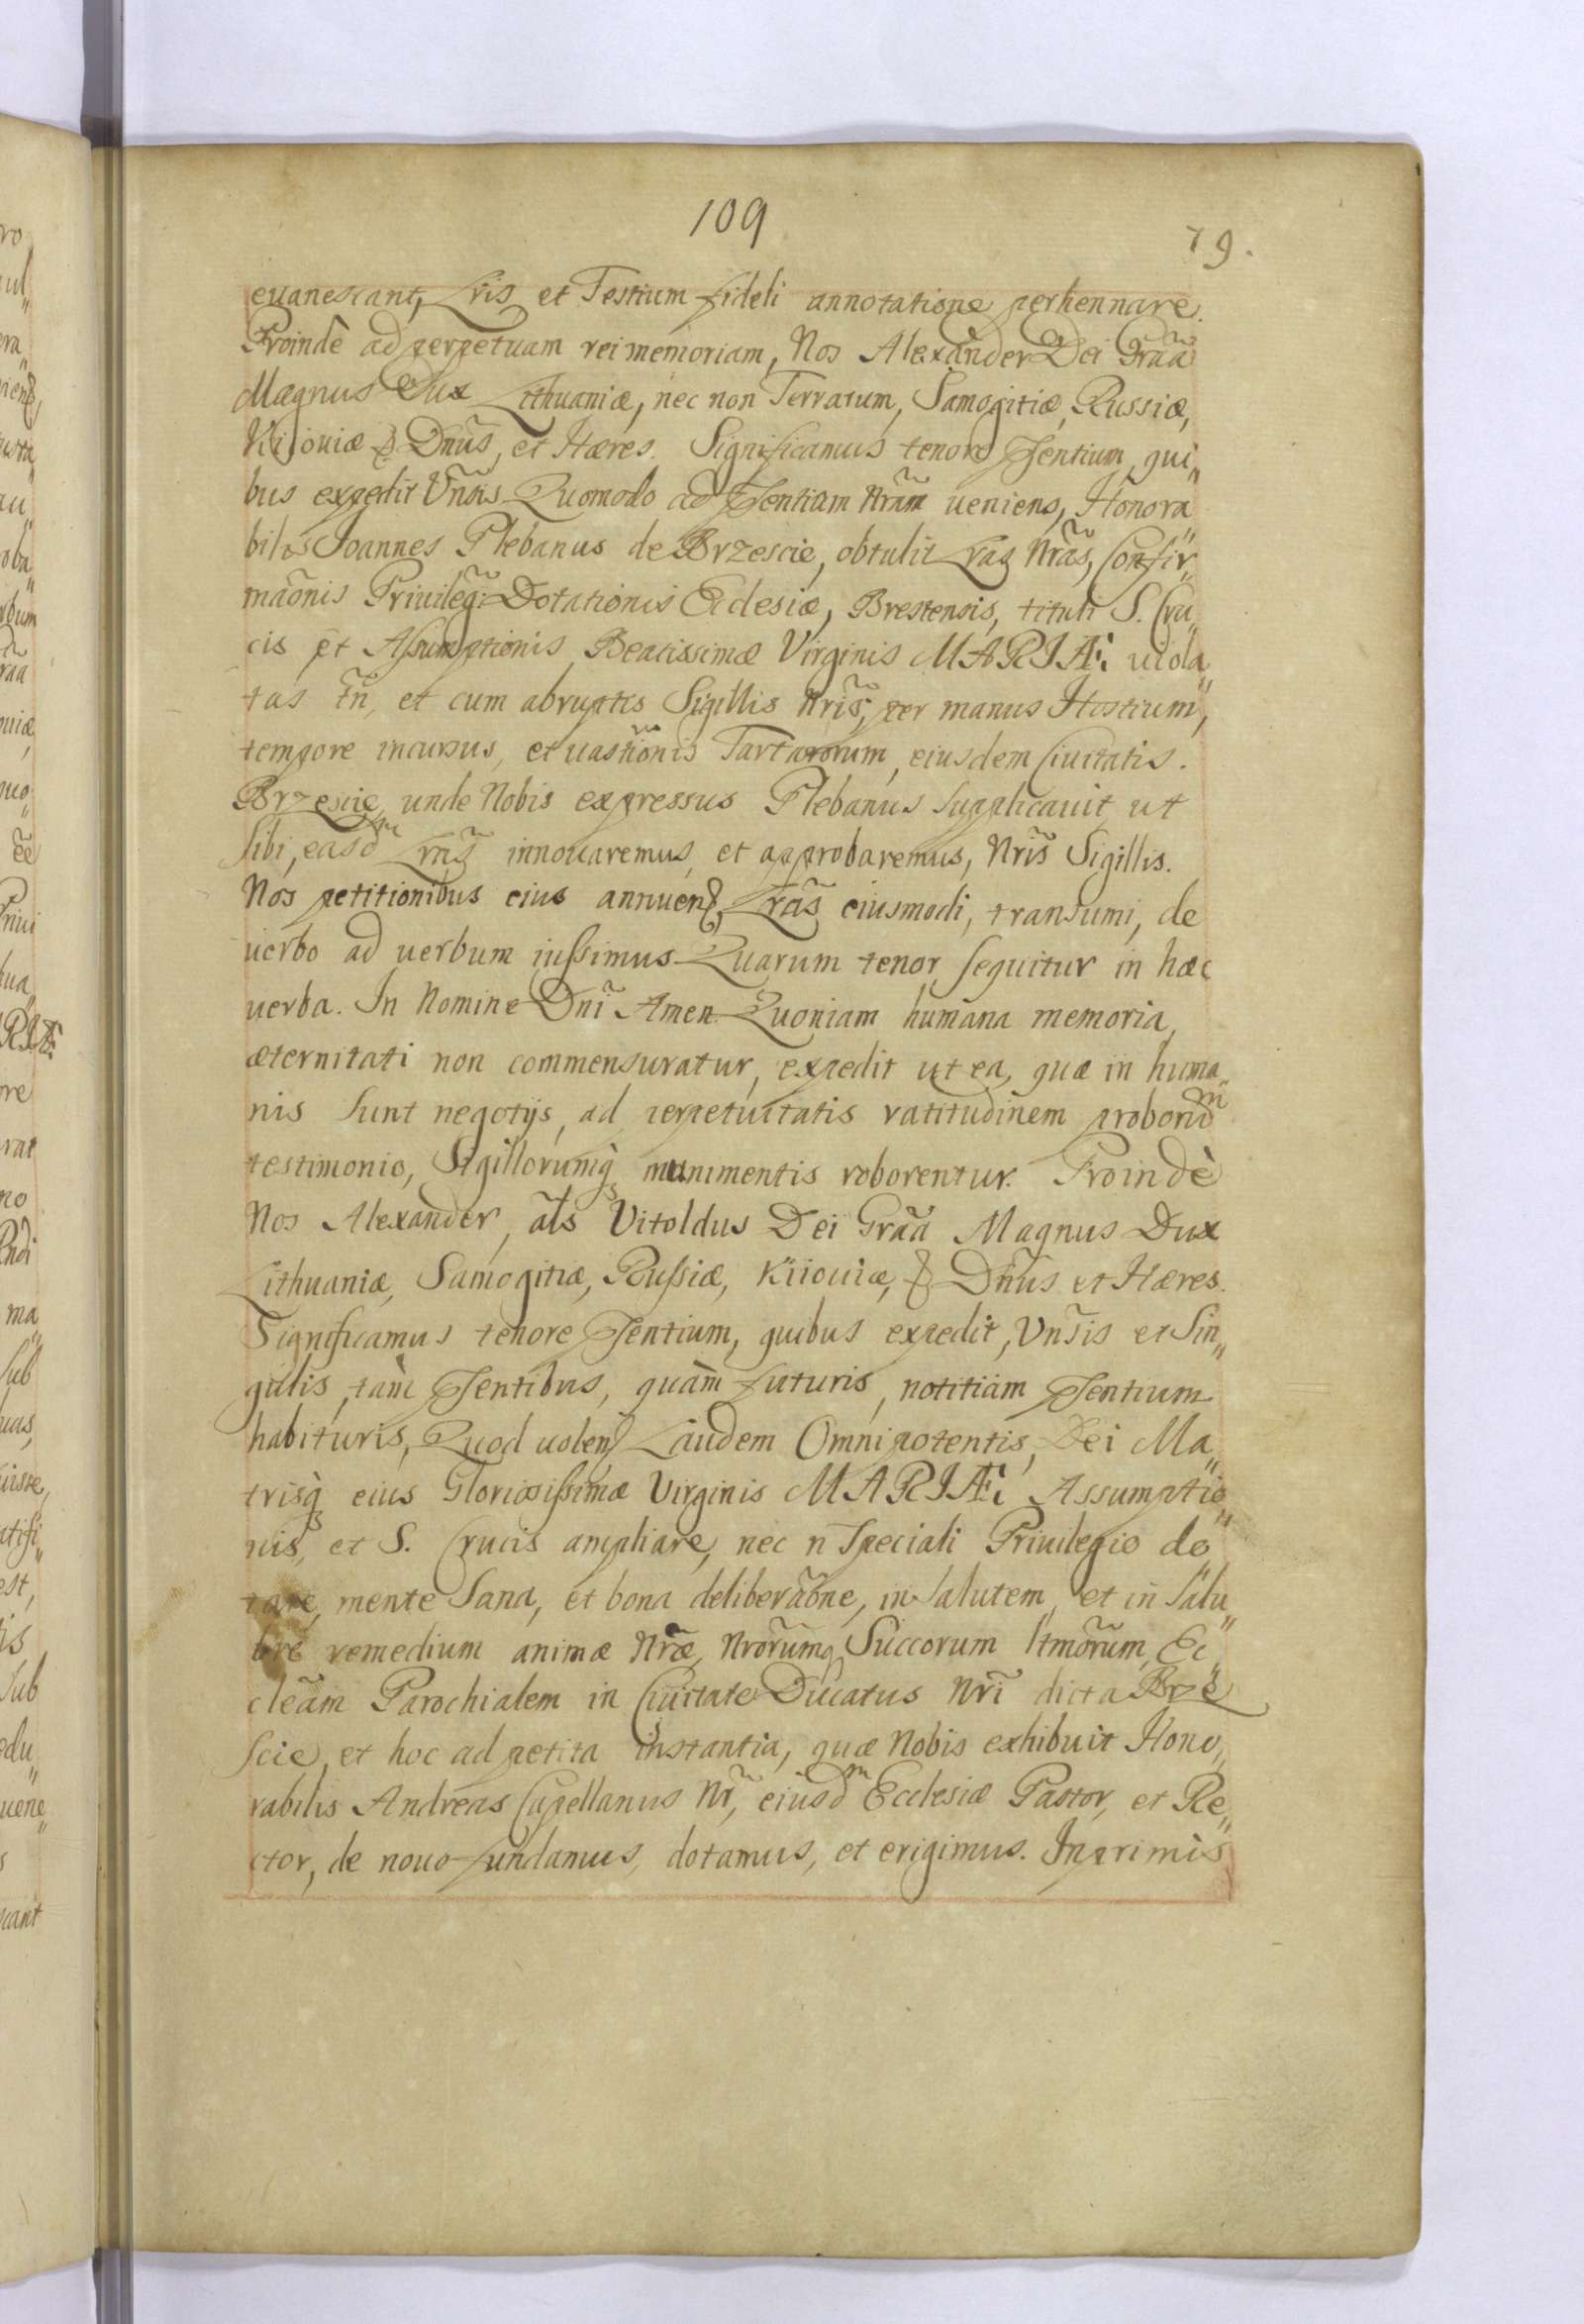 109
79.
euanescant, Lris et Testium fideli annotatione perhennare.
Proindè ad perpetuam rei memoriam, Nos Alexander Dei Grãa
Magnus Dux Lithuaniæ, nec non Terrarum, Samogitiæ, Russiæ,
Kijouiæ & Dnũs, et Hæres. Significamus tenore Pñtium, qui„
bus expedit Vnĩsis Quomodo ad Pñtiam Nrãm ueniens, Honora„
bilis Joannes Plebanus de Brzescie, obtulit Lras Nrãs, Confir„
maõnis Priuilegĩ Dotationis Eclesiæ, Brestensis, tituli S. Cru„
cis et Assumptionis Beatissimæ Virginis MARIÆ: uiola„
tas tñ, et cum abruptis Sigillis Nrĩs, per manus Hostium,
tempore incursus, et uastiõnis Tartarorum, eiusdem Ciuitatis.
Brzescie, unde Nobis expressus Plebanus Supplicauit, ut
sibi, easdm Lrãs innouaremus, et approbaremus, Nrĩs Sigillis.
Nos petitionibus eius annuen, Lrãs eiusmodi, transumi, de
uerbo ad uerbum iussimus Quarum tenor sequitur in hæc
uerba. In Nomine Dnĩ Amen Quoniam humana memoria,
æternitati non commensuratur, expedit ut ea, quæ in huma„
nis sunt negotijs, ad perpetuitatis ratitudinem proborũm
testimonio, Sigillorumq munimentis roborentur. Proindè
Nos Alexander, als̃ Vitoldus Dei Grãa Magnus Dux
Lithuaniæ, Samogitiæ, Russiæ, Kiiouiæ, & Dnũs et Hæres.
Significamus tenore Pñtium, quibus expedit, Vnĩsis et Sin„
gulis, tàm Pñtibus, quàm futuris, notitiam Pñtium
habituris, Quod uolen Laudem Omnipotentis, Dei Ma„
trisq eius Gloriosissimæ Virginis MARIÆ: Assumptio„
nis, et S. Crucis ampliare, nec n Speciali Priuilegio do„
tare, mente Sana, et bona deliberaõne, in Salutem, et in Salu„
bre remedium animæ Nræ̃, Nrõrumq Succorum ltmõrum, Ec„
cleãm Parochialem in Ciuitate Ducatus Nrĩ dicta Brze„
scie, et hoc ad petita instantia, quæ Nobis exhibuit Hono„
rabilis Andreas Capellanus Nr̃, eiusdm Ecclesiæ Pastor, et Re„
ctor, de nouo fundamus, dotamus, et erigimus. Inprimis